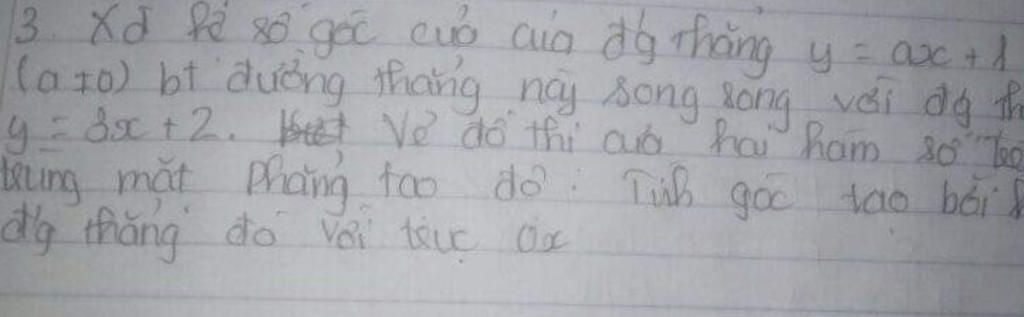 3. Xđ hệ số góc của của đ'g thẳng y = ax + 1
(a ≠ 0) bt đường thẳng này song song với đg th
y = 3x + 2. Vẽ đồ thị của hai hàm số
trung mặt phẳng tao độ. Tính góc tạo bởi
đ'g thẳng đó với trục Ox